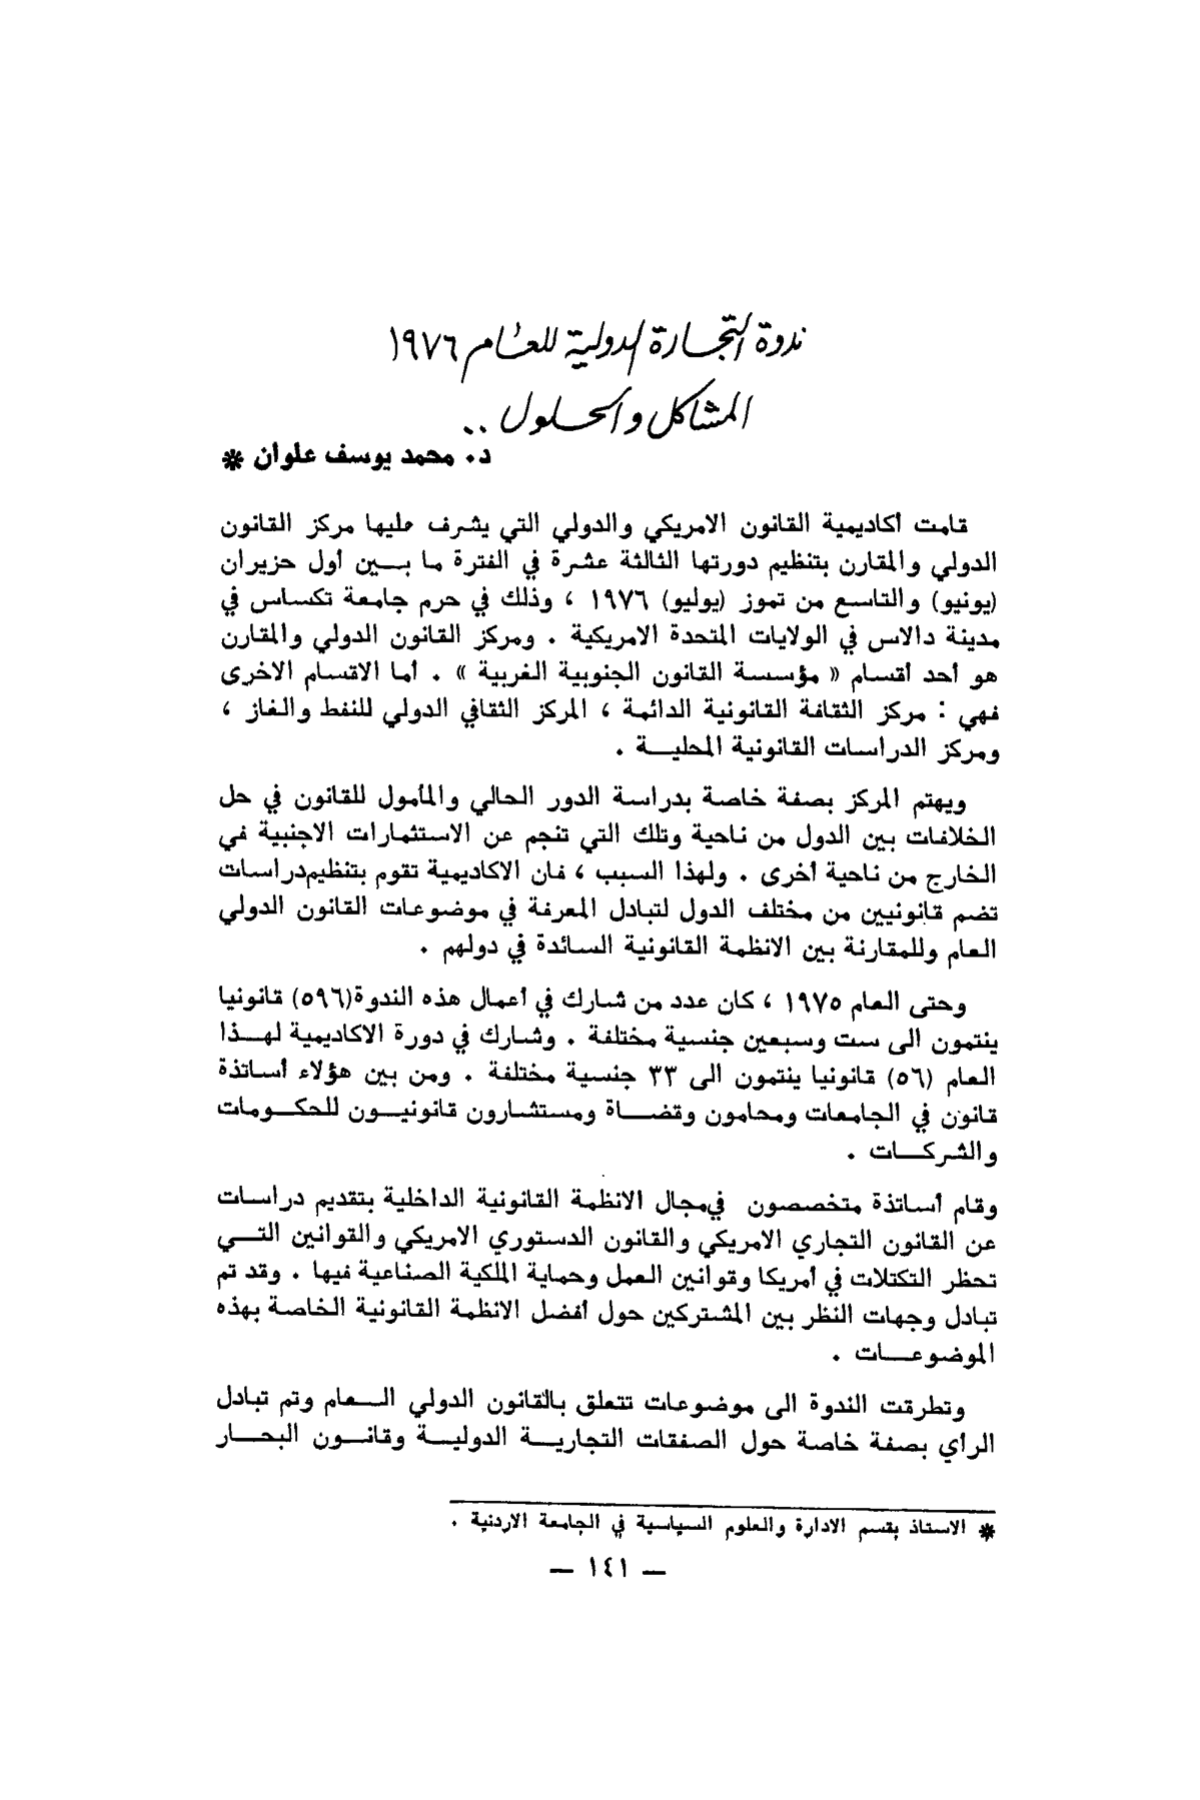 ندوة التجارة الدولية للعام ١٩٧٦
المشاكل والحلول ..
د. محمد يوسف علوان *
قامت أكاديمية القانون الامريكي والدولي التي يشرف عليها مركز القانون
الدولي والمقارن بتنظيم دورتها الثالثة عشرة في الفترة ما بـــين أول حزيران
(يونيو) والتاسع من تموز (يوليو) ١٩٧٦ ، وذلك في حرم جامعة تكساس في
مدينة دالاس في الولايات المتحدة الامريكية . ومركز القانون الدولي والمقارن
هو أحد أقسام « مؤسسة القانون الجنوبية الغربية » . أما الاقسام الاخرى
فهي : مركز الثقافة القانونية الدائمة ، المركز الثقافي الدولي للنفط والغاز ،
ومركز الدراسات القانونية المحليـــة .
ويهتم المركز بصفة خاصة بدراسة الدور الحالي والمأمول للقانون في حل
الخلافات بين الدول من ناحية وتلك التي تنجم عن الاستثمارات الاجنبية في
الخارج من ناحية أخرى . ولهذا السبب ، فان الاكاديمية تقوم بتنظيم دراسات
تضم قانونيين من مختلف الدول لتبادل المعرفة في موضوعات القانون الدولي
العام وللمقارنة بين الانظمة القانونية السائدة في دولهم .
وحتى العام ١٩٧٥ ، كان عدد من شارك في أعمال هذه الندوة (٥٩٦) قانونيا
ينتمون الى ست وسبعين جنسية مختلفة . وشارك في دورة الاكاديمية لهـــذا
العام (٥٦) قانونيا ينتمون الى ٣٣ جنسية مختلفة . ومن بين هؤلاء أساتذة
قانون في الجامعات ومحامون وقضـــاة ومستشارون قانونيـــون للحكـــومات
والشركـــات .
وقام أساتذة متخصصون في مجال الانظمة القانونية الداخلية بتقديم دراسات
عن القانون التجاري الامريكي والقانون الدستوري الامريكي والقوانين التـــي
تحظر التكتلات في أمريكا وقوانين العمل وحماية الملكية الصناعية فيها . وقد تم
تبادل وجهات النظر بين المشتركين حول أفضل الانظمة القانونية الخاصة بهذه
الموضوعـــات .
وتطرقت الندوة الى موضوعات تتعلق بالقانون الدولي العـــام وتم تبادل
الرأي بصفة خاصة حول الصفقات التجاريـــة الدوليـــة وقانـــون البحـــار
* الاستاذ بقسم الادارة والعلوم السياسية في الجامعة الاردنية .
— ١٤١ —